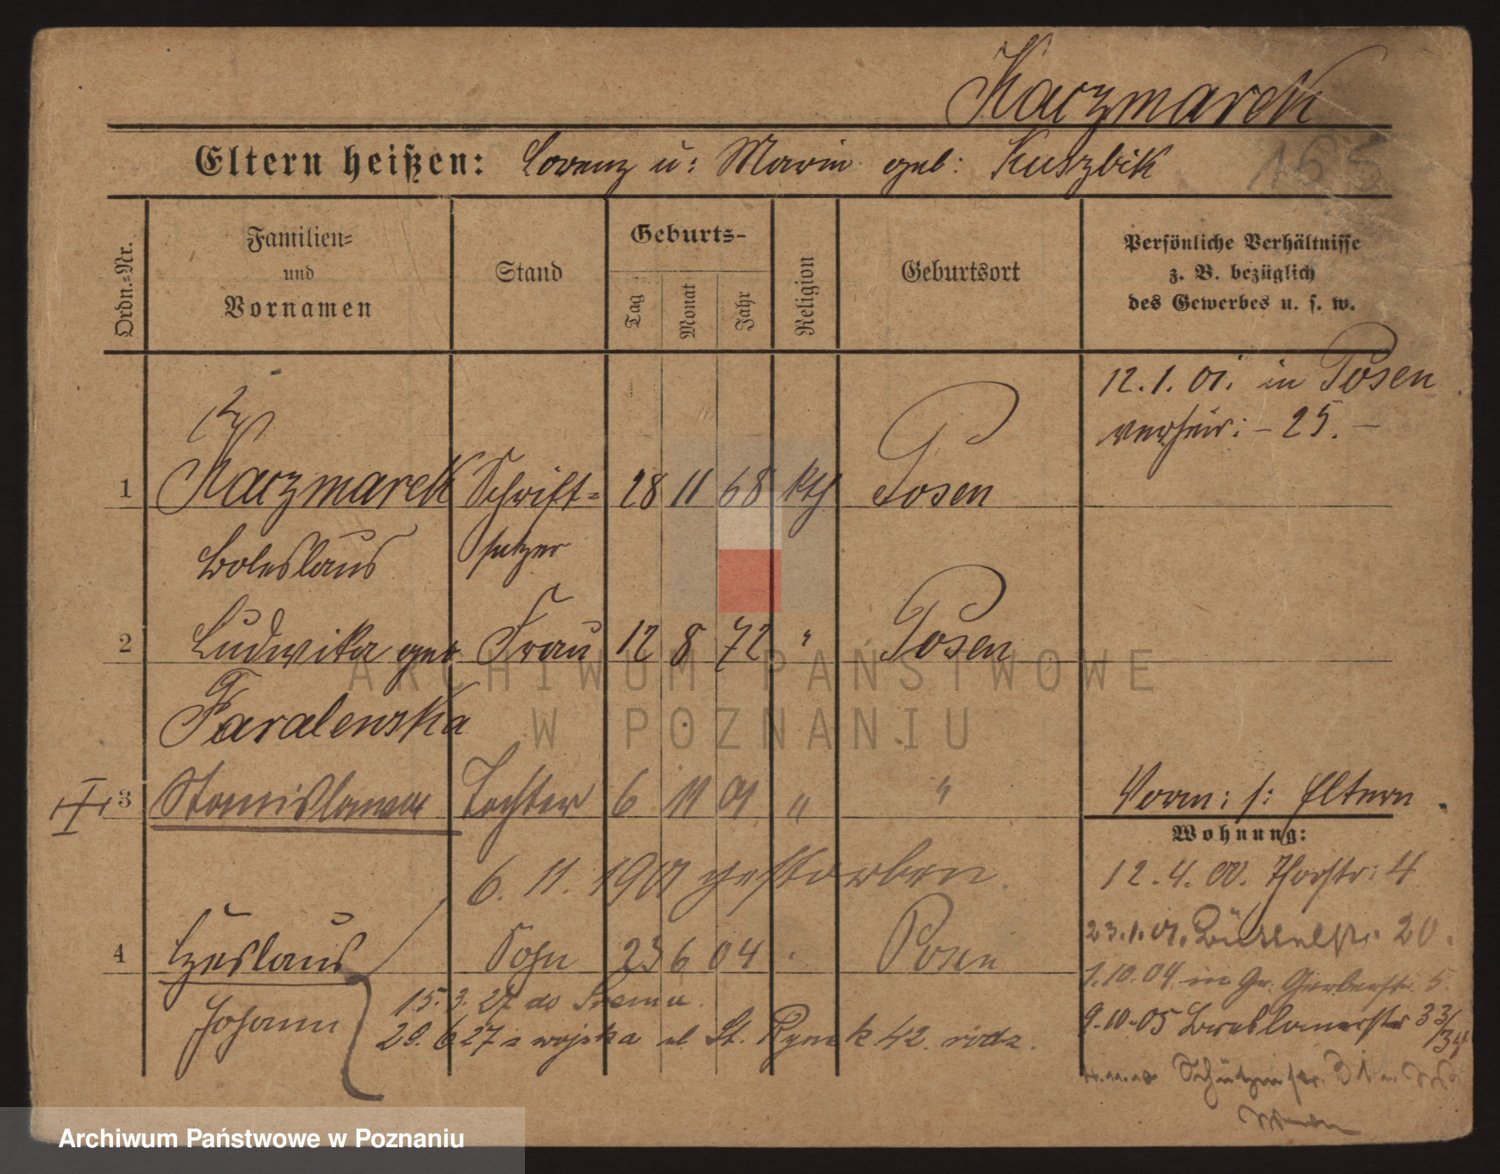 Kaczmarek
Eltern heißen: Lorenz u: Marie geb: Kuszbik
165
Ordn.-Nr.
Familien- und Vornamen
Stand
Geburts-
Tag
Monat
Jahr
Religion
Geburtsort
Persönliche Verhältnisse
z. B. bezüglich
des Gewerbes u. s. w.
12.1.01. in Posen
verheir: – 25. –
1 Kaczmarek Schrift- 28 11 68 kth Posen
Boleslaus setzer
2 Ludwika geb Frau 12 8 72 " Posen
3 Stanislawa Tochter 6 11 01 " "
Vorm: s: Eltern.
Wohnung:
6. 11. 1901 gestorben.
12. 4. 00. Thorstr: 4
23.1.01. 20.
4 Czeslaus Sohn 23 6 04 " Posen
1.10.04 in Gr. Gerberstr. 5.
Johann
15. 3. 27 do Śremu.
9.10.05 Breslauerstr 33/34
20. 6 27 z wojska ul. St. Rynek 42. rodz.
Schützenstr.
ARCHIWUM PAŃSTWOWE
W POZNANIU
Archiwum Państwowe w Poznaniu